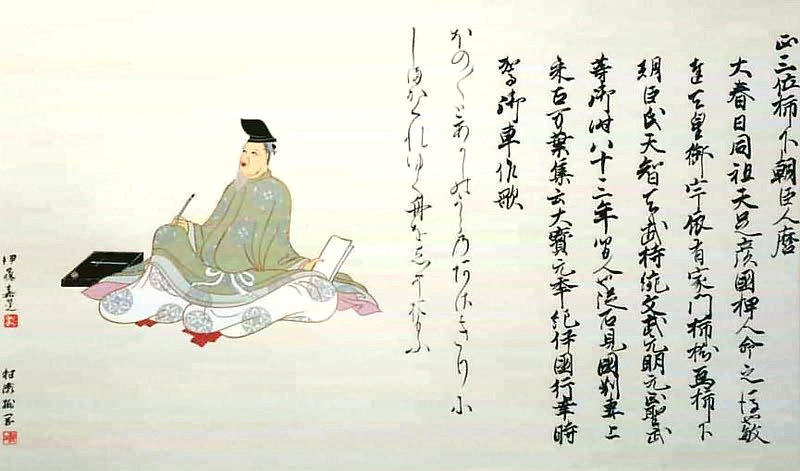 正三位柿下朝臣人麿
大春日同祖天足彦國押人命之後敏
達天皇御宇依有家門柿樹為柿下
朝臣氏天智天武持統文武元明元正聖武
等御時八十三年間人也従石見國別妻上
来古万葉集云大寶元年紀伊國行幸時
駕御車作歌
ほの〱とあかしのうらのあさきりに
しまかくれゆく舟をしそおもふ
伊藤嘉